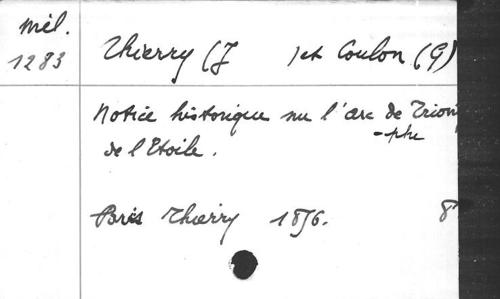 Mél.
1283
Thierry (J )et Coulon (G)
Notice historique sur l'arc de Triom
-phe
de l'Etoile.
Paris Thierry 1856. 8°